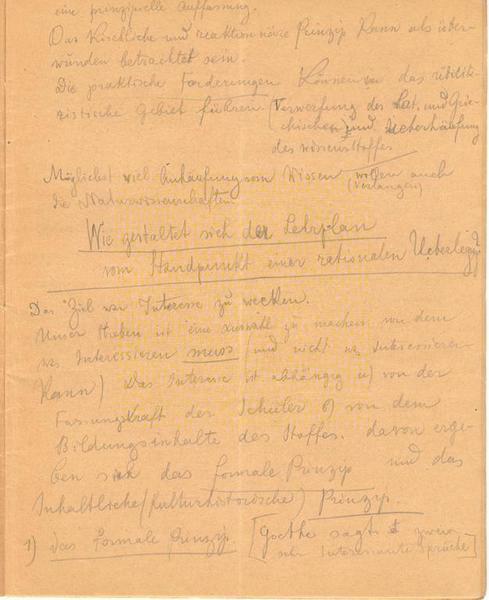 eine prinzipielle Auffassung.
Das Kirchliche und reaktionäre Prinzip kann als über-
wunden betrachtet sein.
Die praktische Forderungen können das utilita-
ristische Gebiet führen. (Verwerfung des Lat. und Grie-
chischen) und Ueberhäufung
des Wissensstoffes
Möglichst viel Anhäufung vom Wissen (wollen auch
verlangen)
die Naturwissenschaften
Wie gestaltet sich der Lehrplan
vom Standpunkt einer rationalen Ueberlegg?
Das Ziel war Interesse zu wecken.
Unser Streben ist eine Auswahl zu machen von dem
was Interessieren muss (und nicht was Interessieren
kann) Das Interesse ist abhängig a) von der
Fassungskraft der Schüler b) von dem
Bildungsinhalte des Stoffes. davon erge-
ben sich das formale Prinzip und das
Inhaltliche (kulturhistorische) Prinzip.
1) das formale Prinzip. [Goethe sagt zwei
sehr Interessante Sprüche]